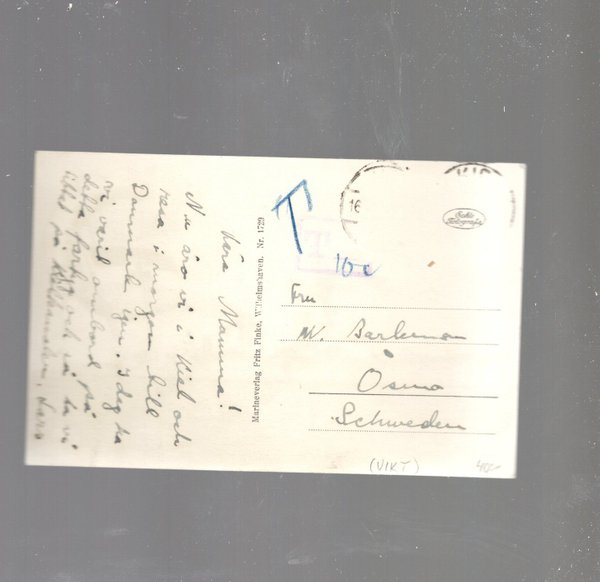 Kära Mamma!
Nu äro vi i Kiel och
resa i morgon till
Danmark igen. I dag ha
vi varit ombord på
detta fartyg och så ha vi
tittat på Lars
Marineverlag Fritz Finke, Wilhelmshaven. Nr. 1729
T
T
10 c
KIE
Echte
Fotografie
Fru
W. Barkman
Ösmo
Schweden
(VIKT)
40:-